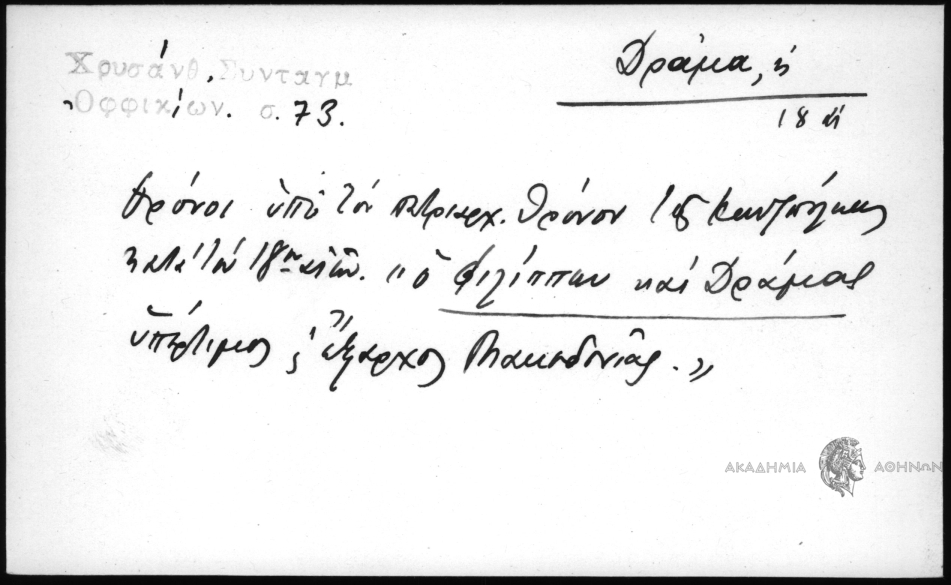 Χρυσάνθ. Συνταγμ
Ὀφφικίων. σ. 73.
Δράμα, ἡ
18 αἰ
θρόνοι ὑπὸ τὸν πατριαρχ. θρόνον τῆς Κωνσ]πόλεως
κατὰ τὸν 18ον αἰῶν. "ὁ Φιλίππων καὶ Δράμας
ὑπέρτιμος ἔξαρχος Μακεδονίας."
ΑΚΑΔΗΜΙΑ ΑΘΗΝΩΝ